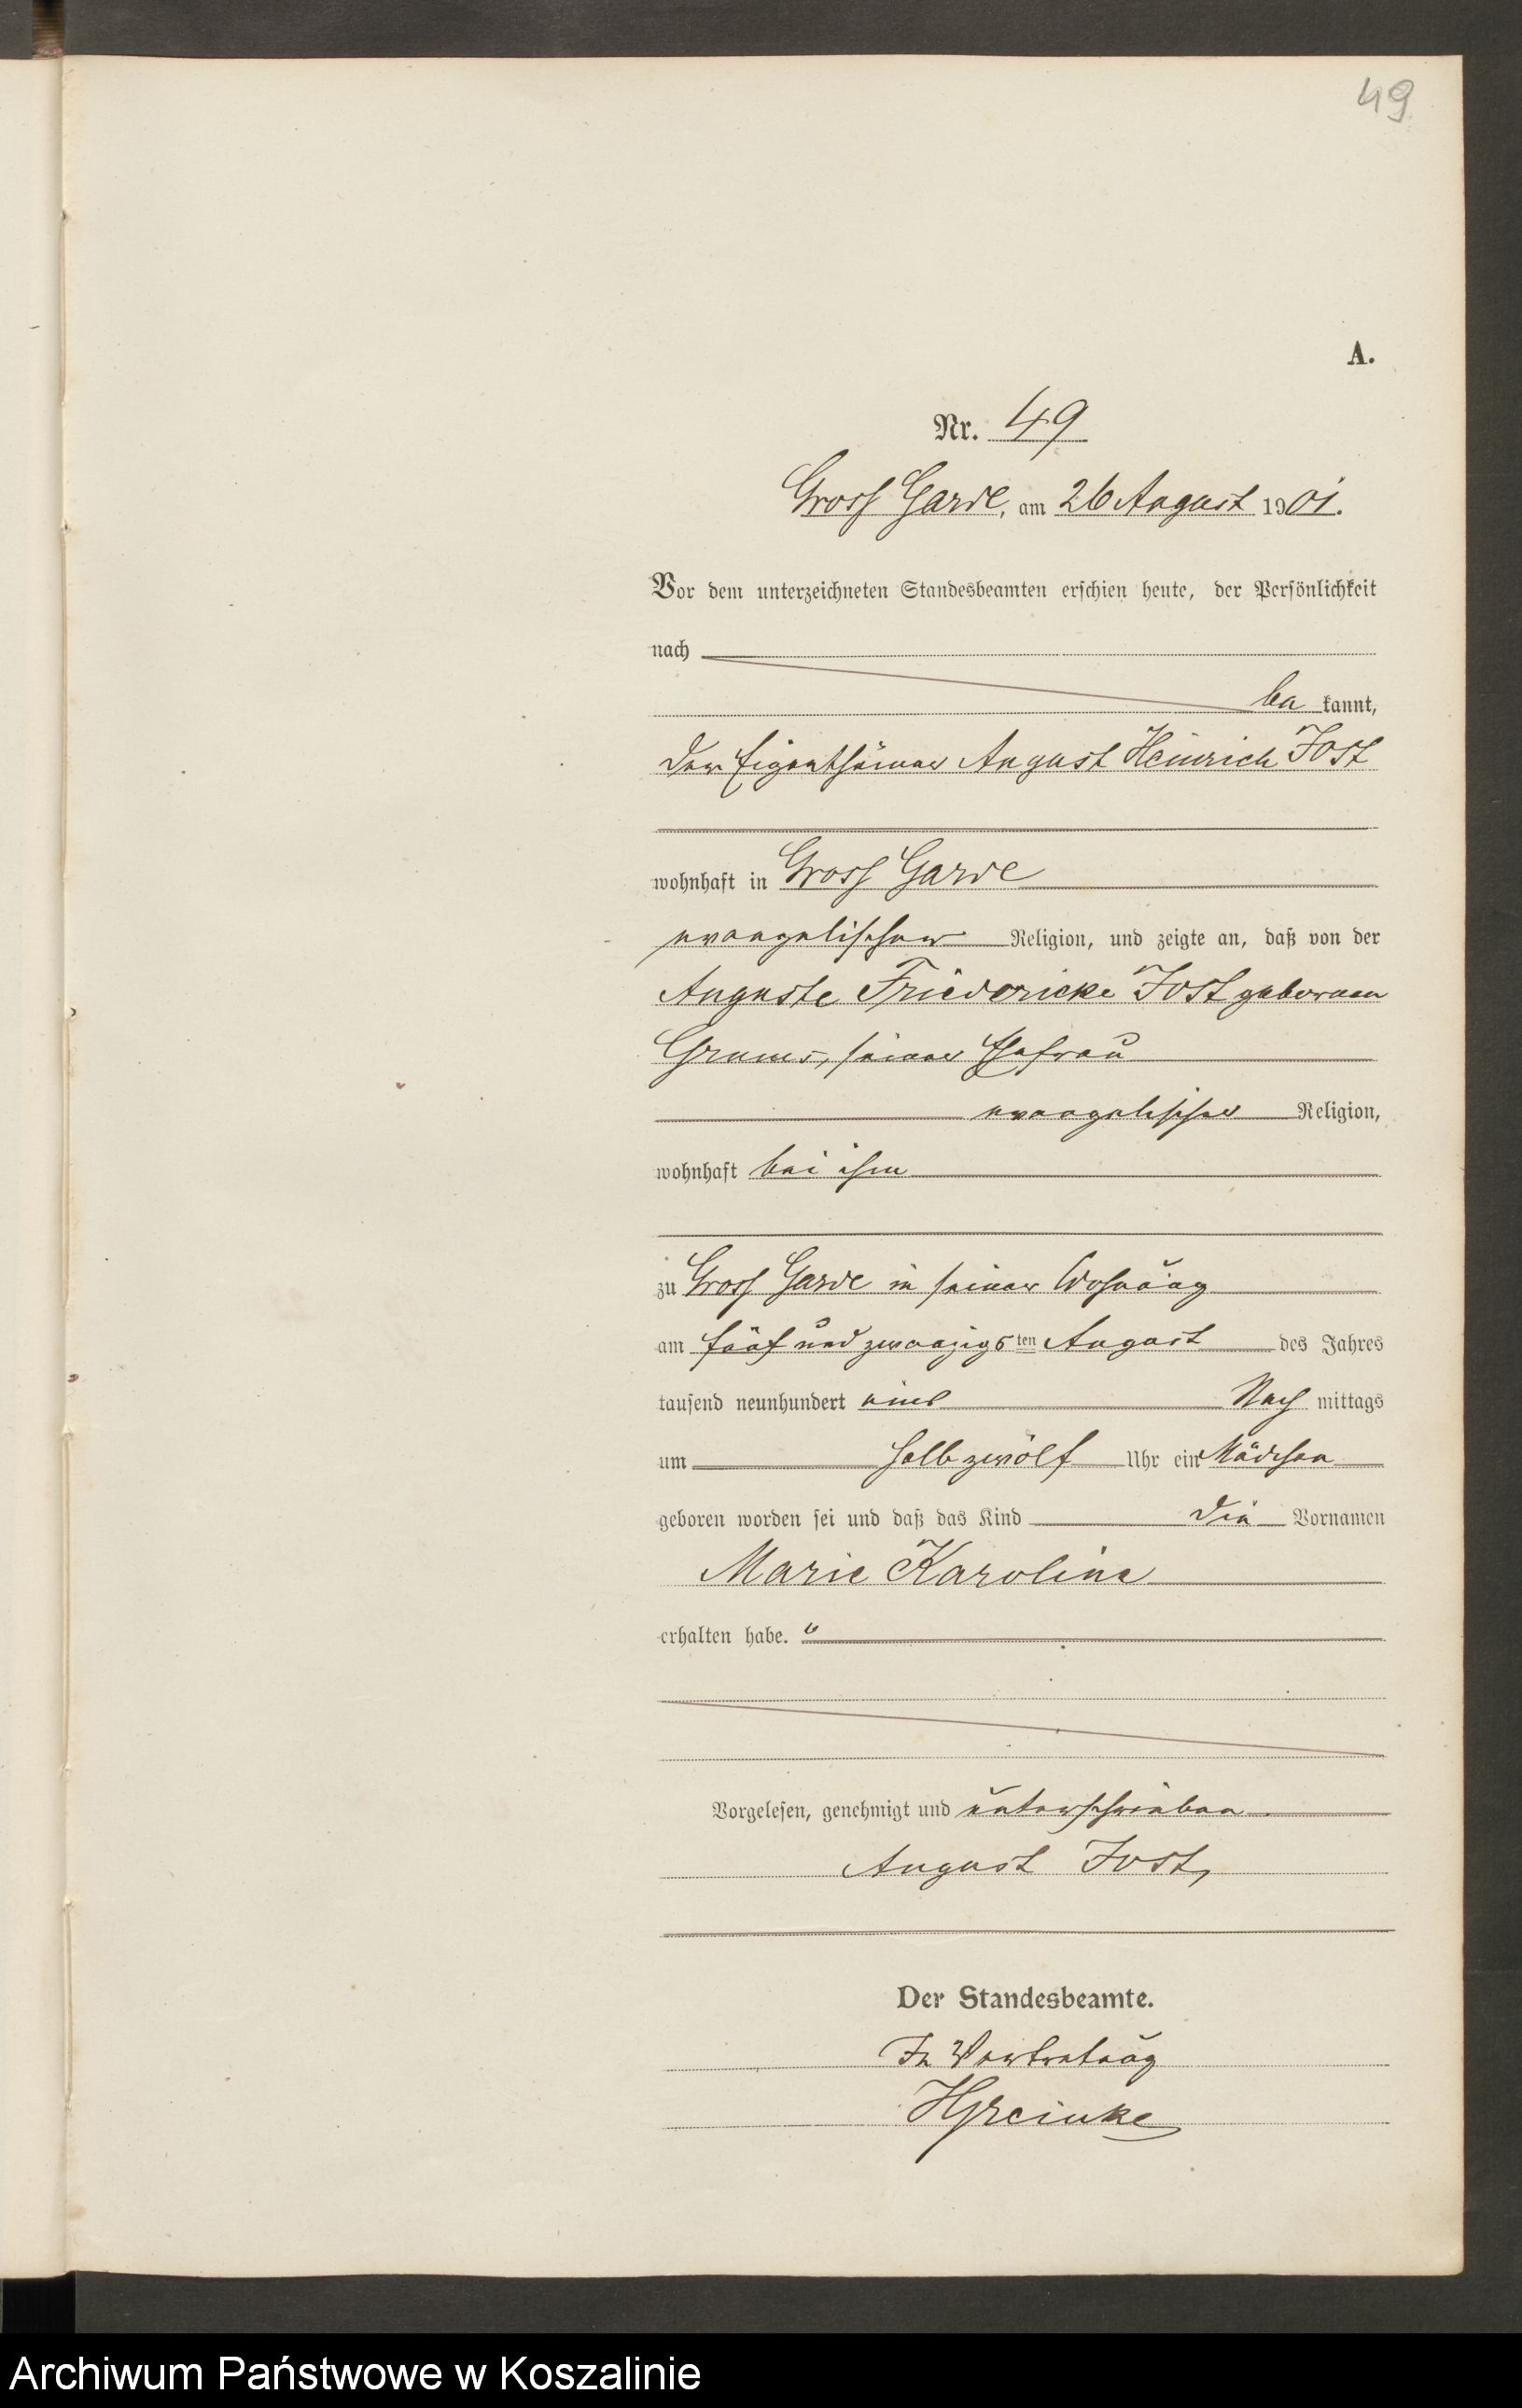 49
A.
Nr. 49
Gross Garde, am 26 August 1901.
Vor dem unterzeichneten Standesbeamten erschien heute, der Persönlichkeit
nach
be kannt,
der Eigenthümer August Heinrich Jost
wohnhaft in Gross Garde
evangelischer Religion, und zeigte an, daß von der
Auguste Friedericke Jost geborenen
seiner Ehefrau
evangelischer Religion,
wohnhaft bei ihm
zu Gross Garde in seiner Wohnung
am fünf und zwanzigsten August des Jahres
tausend neunhundert eins Nach mittags
um halb zwölf Uhr ein Mädchen
geboren worden sei und daß das Kind die Vornamen
Marie Karoline
erhalten habe.
Vorgelesen, genehmigt und unterschrieben
August Jost,
Der Standesbeamte.
In Vertretung
Archiwum Państwowe w Koszalinie